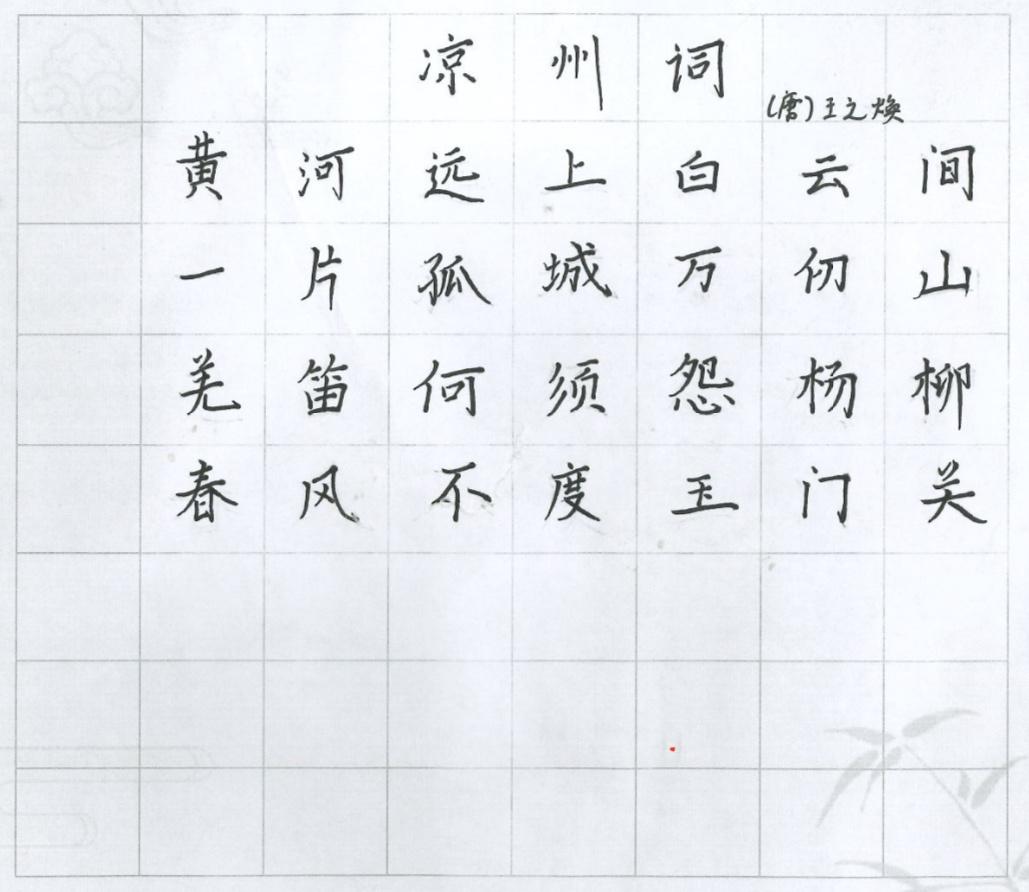 凉州词
(唐)王之焕
黄河远上白云间
一片孤城万仞山
羌笛何须怨杨柳
春风不度玉门关